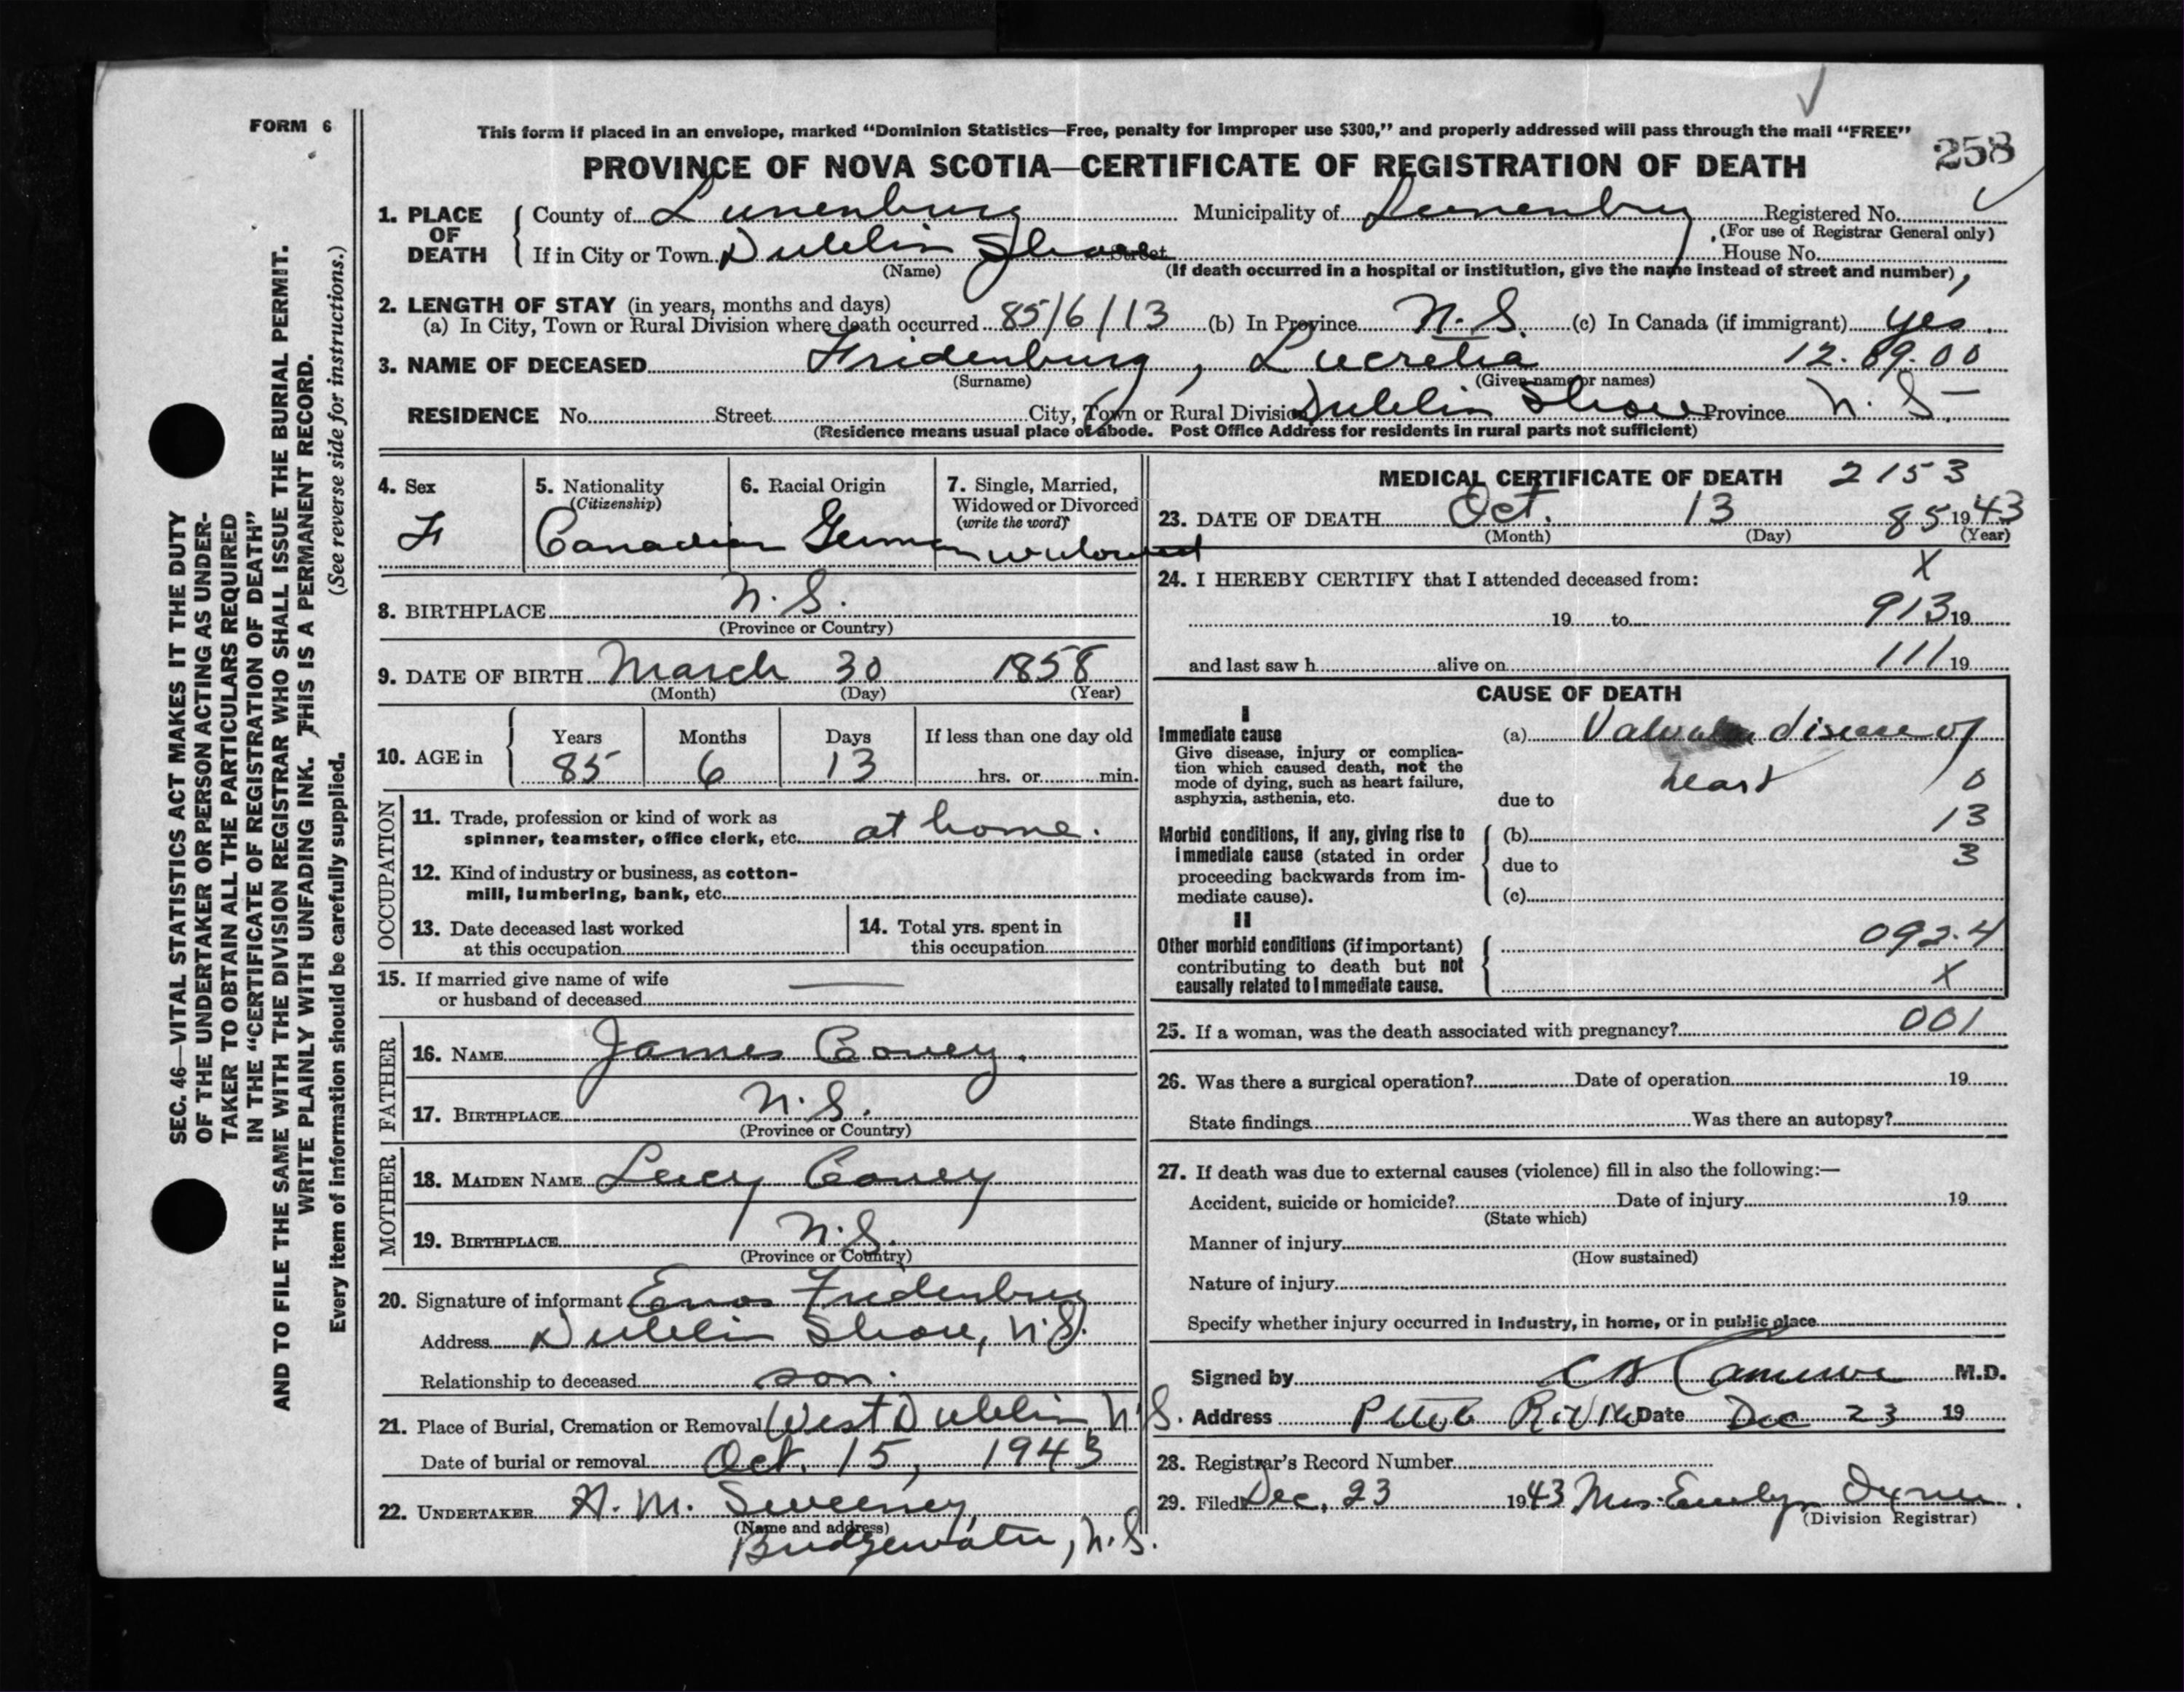 FORM 6
This form if placed in an envelope, marked "Dominion Statistics—Free, penalty for improper use $300," and properly addressed will pass through the mail "FREE"
PROVINCE OF NOVA SCOTIA—CERTIFICATE OF REGISTRATION OF DEATH
258
1. PLACE OF DEATH
County of Lunenburg Municipality of Lunenburg Registered No.
(For use of Registrar General only)
If in City or Town Dublin Shore Street House No.
(Name) (If death occurred in a hospital or institution, give the name instead of street and number)
2. LENGTH OF STAY (in years, months and days)
(a) In City, Town or Rural Division where death occurred 85/6/13 (b) In Province N.S. (c) In Canada (if immigrant) yes.
3. NAME OF DECEASED Fridenburg, Lucretia 12.89.00
(Surname) (Given name or names)
RESIDENCE No. Street City, Town or Rural Division Dublin Shore Province N.S.
(Residence means usual place of abode. Post Office Address for residents in rural parts not sufficient)
4. Sex
F
5. Nationality
(Citizenship)
Canadian
6. Racial Origin
German
7. Single, Married,
Widowed or Divorced
(write the word)
widowed
8. BIRTHPLACE N.S.
(Province or Country)
9. DATE OF BIRTH March 30 1858
(Month) (Day) (Year)
10. AGE in
Years Months Days If less than one day old
85 6 13 hrs. or min.
OCCUPATION
11. Trade, profession or kind of work as
spinner, teamster, office clerk, etc. at home.
12. Kind of industry or business, as cotton-
mill, lumbering, bank, etc.
13. Date deceased last worked
at this occupation
14. Total yrs. spent in
this occupation
15. If married give name of wife
or husband of deceased —
FATHER
16. NAME James Coney.
17. BIRTHPLACE N.S.
(Province or Country)
MOTHER
18. MAIDEN NAME Lucy Coney
19. BIRTHPLACE N.S.
(Province or Country)
20. Signature of informant Enos Fridenburg
Address Dublin Shore, N.S.
Relationship to deceased son.
21. Place of Burial, Cremation or Removal West Dublin N.S.
Date of burial or removal Oct. 15, 1943
22. UNDERTAKER A. M. Sweeney,
(Name and address)
Bridgewater, N.S.
MEDICAL CERTIFICATE OF DEATH 2153
23. DATE OF DEATH Oct. 13 85 1943
(Month) (Day) (Year)
24. I HEREBY CERTIFY that I attended deceased from: X
19 to 913 19
and last saw h alive on 111 19
CAUSE OF DEATH
I
Immediate cause
Give disease, injury or complica-
tion which caused death, not the
mode of dying, such as heart failure,
asphyxia, asthenia, etc.
(a) Valvular disease of
heart 0
due to
13
Morbid conditions, if any, giving rise to
immediate cause (stated in order
proceeding backwards from im-
mediate cause).
(b)
due to 3
(c)
II
Other morbid conditions (if important)
contributing to death but not
causally related to immediate cause.
092.4
X
25. If a woman, was the death associated with pregnancy? 001
26. Was there a surgical operation? Date of operation 19
State findings Was there an autopsy?
27. If death was due to external causes (violence) fill in also the following:—
Accident, suicide or homicide? Date of injury 19
(State which)
Manner of injury
(How sustained)
Nature of injury
Specify whether injury occurred in industry, in home, or in public place
Signed by M.D.
Address Date Dec 23 19
28. Registrar's Record Number
29. Filed Dec. 23 1943 Mrs.
(Division Registrar)
SEC. 46—VITAL STATISTICS ACT MAKES IT THE DUTY
OF THE UNDERTAKER OR PERSON ACTING AS UNDER-
TAKER TO OBTAIN ALL THE PARTICULARS REQUIRED
IN THE "CERTIFICATE OF REGISTRATION OF DEATH"
AND TO FILE THE SAME WITH THE DIVISION REGISTRAR WHO SHALL ISSUE THE BURIAL PERMIT.
WRITE PLAINLY WITH UNFADING INK. THIS IS A PERMANENT RECORD.
Every item of information should be carefully supplied. (See reverse side for instructions.)